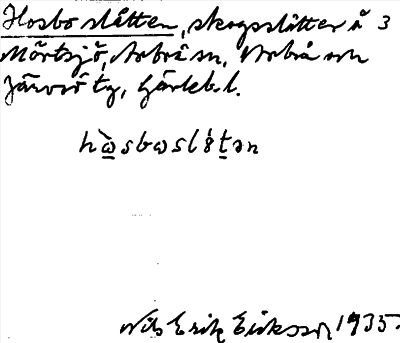 Hosboslåtten, skogsslåtter å 3
Mörtsjö, Arbrå sn, Arbrå och
Järvsö tg, Gävleb. l.
hὼsbɷslǻtən
Nils Erik Eriksson 1935.